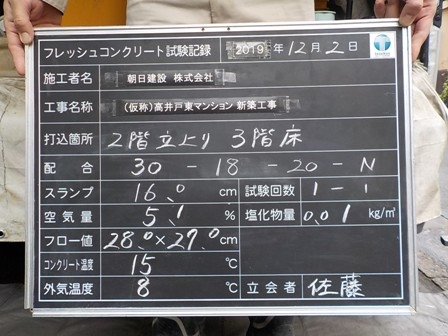 フレッシュコンクリート試験記録 2019年12月2日
施工者名 朝日建設 株式会社
工事名称 (仮称)高井戸東マンション 新築工事
打込箇所 2階立上り 3階床
配合 30 - 18 - 20 - N
スランプ 16.0 cm 試験回数 1-1
空気量 5.1 % 塩化物量 0.01 kg/m³
フロー値 28.0×27.0 cm
コンクリート温度 15 ℃
外気温度 8 ℃ 立会者 佐藤